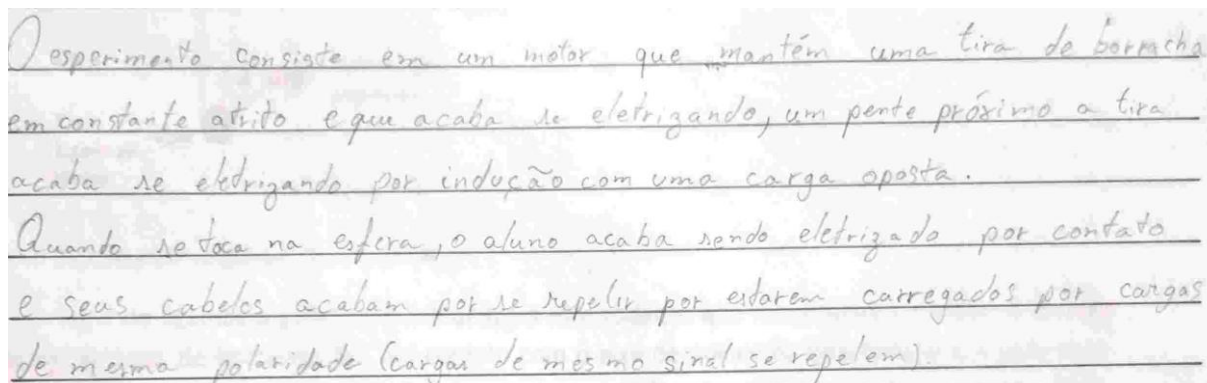 O esperimento consiste em um motor que mantém uma tira de borracha
em constante atrito e que acaba se eletrizando, um pente próximo a tira
acaba se eletrizando por indução com uma carga oposta.
Quando se toca na esfera, o aluno acaba sendo eletrizado por contato
e seus cabelos acabam por se repelir por estarem carregados por cargas
de mesma polaridade (cargas de mesmo sinal se repelem).